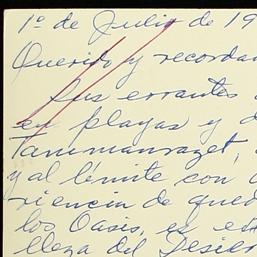 1º de Julio de 19
Querido y recordad
Sus errantes
en playas y d
Tammanrazet,
y al límite con
riencia de qued
los Oasis, es est
lleza del Desier